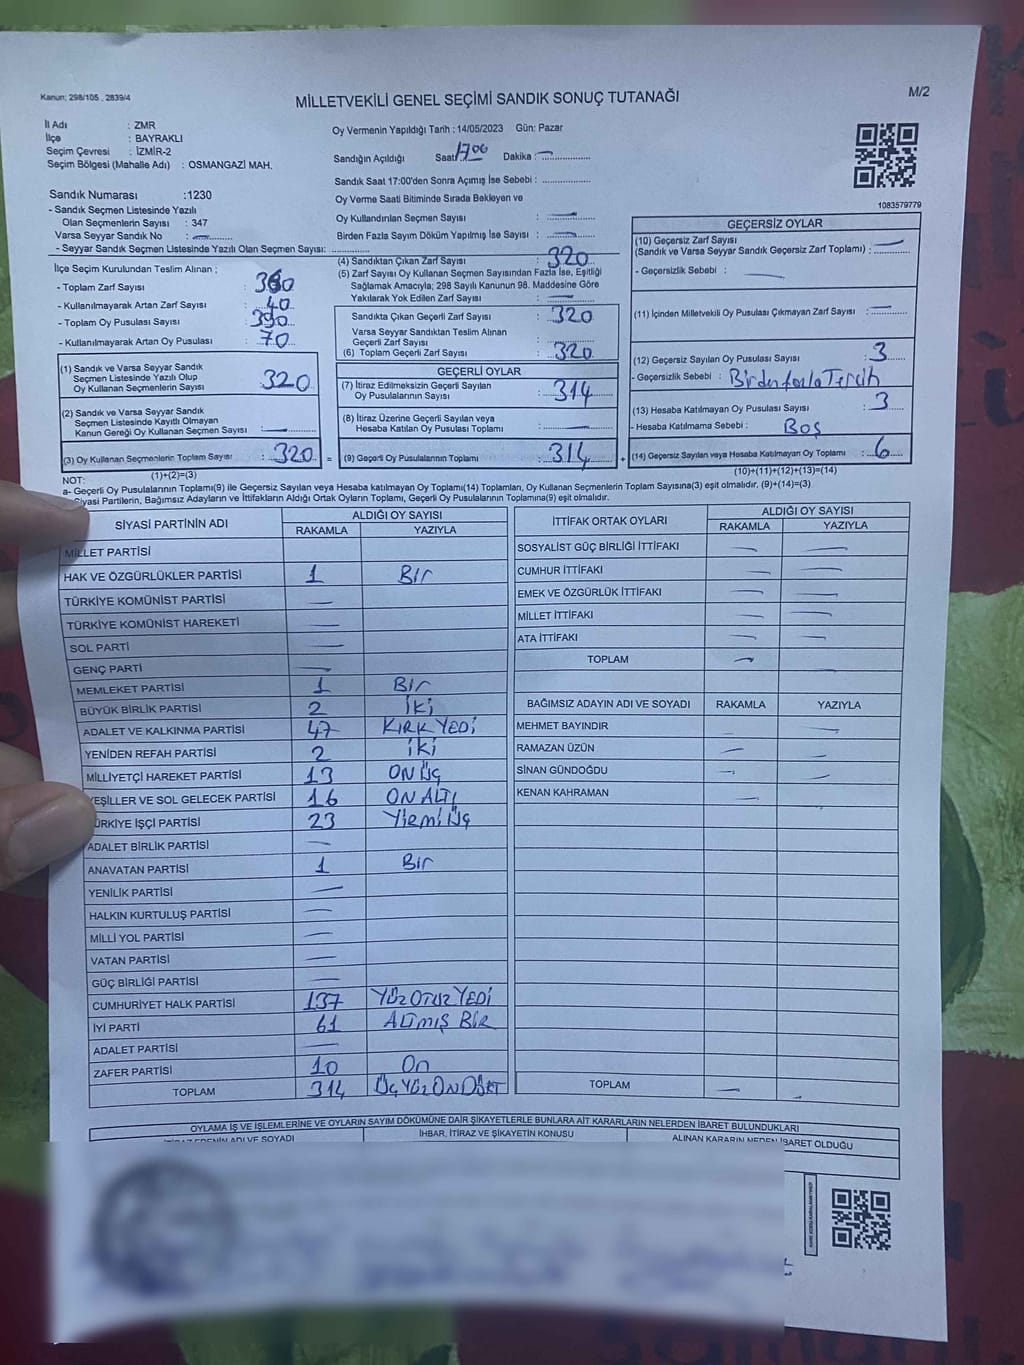 Kanun: 298/105 , 2839/4
MİLLETVEKİLİ GENEL SEÇİMİ SANDIK SONUÇ TUTANAĞI
M/2
İl Adı : ZMR
İlçe : BAYRAKLI
Seçim Çevresi : İZMİR-2
Seçim Bölgesi (Mahalle Adı) : OSMANGAZİ MAH.
Oy Vermenin Yapıldığı Tarih : 14/05/2023 Gün: Pazar
Sandığın Açıldığı Saat 1700 Dakika : —
Sandık Saat 17:00'den Sonra Açımış İse Sebebi :
Oy Verme Saati Bitiminde Sırada Bekleyen ve
Oy Kullandırılan Seçmen Sayısı : —
Birden Fazla Sayım Döküm Yapılmış İse Sayısı : —
1083579779
Sandık Numarası :1230
- Sandık Seçmen Listesinde Yazılı
Olan Seçmenlerin Sayısı : 347
Varsa Seyyar Sandık No : —
- Seyyar Sandık Seçmen Listesinde Yazılı Olan Seçmen Sayısı:
İlçe Seçim Kurulundan Teslim Alınan ;
- Toplam Zarf Sayısı : 360
- Kullanılmayarak Artan Zarf Sayısı : 40
- Toplam Oy Pusulası Sayısı : 390
- Kullanılmayarak Artan Oy Pusulası : 70
(1) Sandık ve Varsa Seyyar Sandık
Seçmen Listesinde Yazılı Olup
Oy Kullanan Seçmenlerin Sayısı : 320
(2) Sandık ve Varsa Seyyar Sandık
Seçmen Listesinde Kayıtlı Olmayan
Kanun Gereği Oy Kullanan Seçmen Sayısı : —
(3) Oy Kullanan Seçmenlerin Toplam Sayısı : 320 =
(1)+(2)=(3)
(4) Sandıktan Çıkan Zarf Sayısı : 320
(5) Zarf Sayısı Oy Kullanan Seçmen Sayısından Fazla İse, Eşitliği
Sağlamak Amacıyla; 298 Sayılı Kanunun 98. Maddesine Göre
Yakılarak Yok Edilen Zarf Sayısı : —
Sandıkta Çıkan Geçerli Zarf Sayısı : 320
Varsa Seyyar Sandıktan Teslim Alınan
Geçerli Zarf Sayısı :
(6) Toplam Geçerli Zarf Sayısı : 320
GEÇERLİ OYLAR
(7) İtiraz Edilmeksizin Geçerli Sayılan
Oy Pusulalarının Sayısı : 314
(8) İtiraz Üzerine Geçerli Sayılan veya
Hesaba Katılan Oy Pusulası Toplamı : —
(9) Geçerli Oy Pusulalarının Toplamı : 314 +
GEÇERSİZ OYLAR
(10) Geçersiz Zarf Sayısı
(Sandık ve Varsa Seyyar Sandık Geçersiz Zarf Toplamı) : —
- Geçersizlik Sebebi : —
(11) İçinden Milletvekili Oy Pusulası Çıkmayan Zarf Sayısı : —
(12) Geçersiz Sayılan Oy Pusulası Sayısı : 3
- Geçersizlik Sebebi : Birden fazla Tercih
(13) Hesaba Katılmayan Oy Pusulası Sayısı : 3
- Hesaba Katılmama Sebebi : Boş
(14) Geçersiz Sayılan veya Hesaba Katılmayan Oy Toplamı : 6
(10)+(11)+(12)+(13)=(14)
NOT:
a- Geçerli Oy Pusulalarının Toplamı(9) ile Geçersiz Sayılan veya Hesaba katılmayan Oy Toplamı(14) Toplamları, Oy Kullanan Seçmenlerin Toplam Sayısına(3) eşit olmalıdır. (9)+(14)=(3)
Siyasi Partilerin, Bağımsız Adayların ve İttifakların Aldığı Ortak Oyların Toplamı, Geçerli Oy Pusulalarının Toplamına(9) eşit olmalıdır.
SİYASİ PARTİNİN ADI ALDIĞI OY SAYISI
RAKAMLA YAZIYLA
MİLLET PARTİSİ
HAK VE ÖZGÜRLÜKLER PARTİSİ 1 Bir
TÜRKİYE KOMÜNİST PARTİSİ —
TÜRKİYE KOMÜNİST HAREKETİ —
SOL PARTİ —
GENÇ PARTİ —
MEMLEKET PARTİSİ 1 Bir
BÜYÜK BİRLİK PARTİSİ 2 İki
ADALET VE KALKINMA PARTİSİ 47 KIRK YEDİ
YENİDEN REFAH PARTİSİ 2 iki
MİLLİYETÇİ HAREKET PARTİSİ 13 ON ÜÇ
YEŞİLLER VE SOL GELECEK PARTİSİ 16 ON ALTI
TÜRKİYE İŞÇİ PARTİSİ 23 Yirmi Üç
ADALET BİRLİK PARTİSİ —
ANAVATAN PARTİSİ 1 Bir
YENİLİK PARTİSİ —
HALKIN KURTULUŞ PARTİSİ —
MİLLİ YOL PARTİSİ —
VATAN PARTİSİ —
GÜÇ BİRLİĞİ PARTİSİ —
CUMHURİYET HALK PARTİSİ 137 YÜZ OTUZ YEDİ
İYİ PARTİ 61 ALTMIŞ BİR
ADALET PARTİSİ —
ZAFER PARTİSİ 10 On
TOPLAM 314 ÜÇ YÜZ ON DÖRT
İTTİFAK ORTAK OYLARI ALDIĞI OY SAYISI
RAKAMLA YAZIYLA
SOSYALİST GÜÇ BİRLİĞİ İTTİFAKI — —
CUMHUR İTTİFAKI — —
EMEK VE ÖZGÜRLÜK İTTİFAKI — —
MİLLET İTTİFAKI — —
ATA İTTİFAKI — —
TOPLAM — —
BAĞIMSIZ ADAYIN ADI VE SOYADI RAKAMLA YAZIYLA
MEHMET BAYINDIR — —
RAMAZAN ÜZÜN — —
SİNAN GÜNDOĞDU — —
KENAN KAHRAMAN — —
TOPLAM — —
OYLAMA İŞ VE İŞLEMLERİNE VE OYLARIN SAYIM DÖKÜMÜNE DAİR ŞİKAYETLERLE BUNLARA AİT KARARLARIN NELERDEN İBARET BULUNDUKLARI
ADI VE SOYADI İHBAR, İTİRAZ VE ŞİKAYETİN KONUSU ALINAN KARARIN NEDEN İBARET OLDUĞU